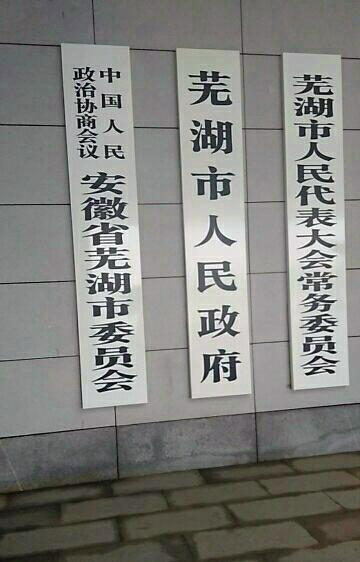 芜湖市人民代表大会常务委员会
芜湖市人民政府
中国人民
政治协商会议
安徽省芜湖市委员会